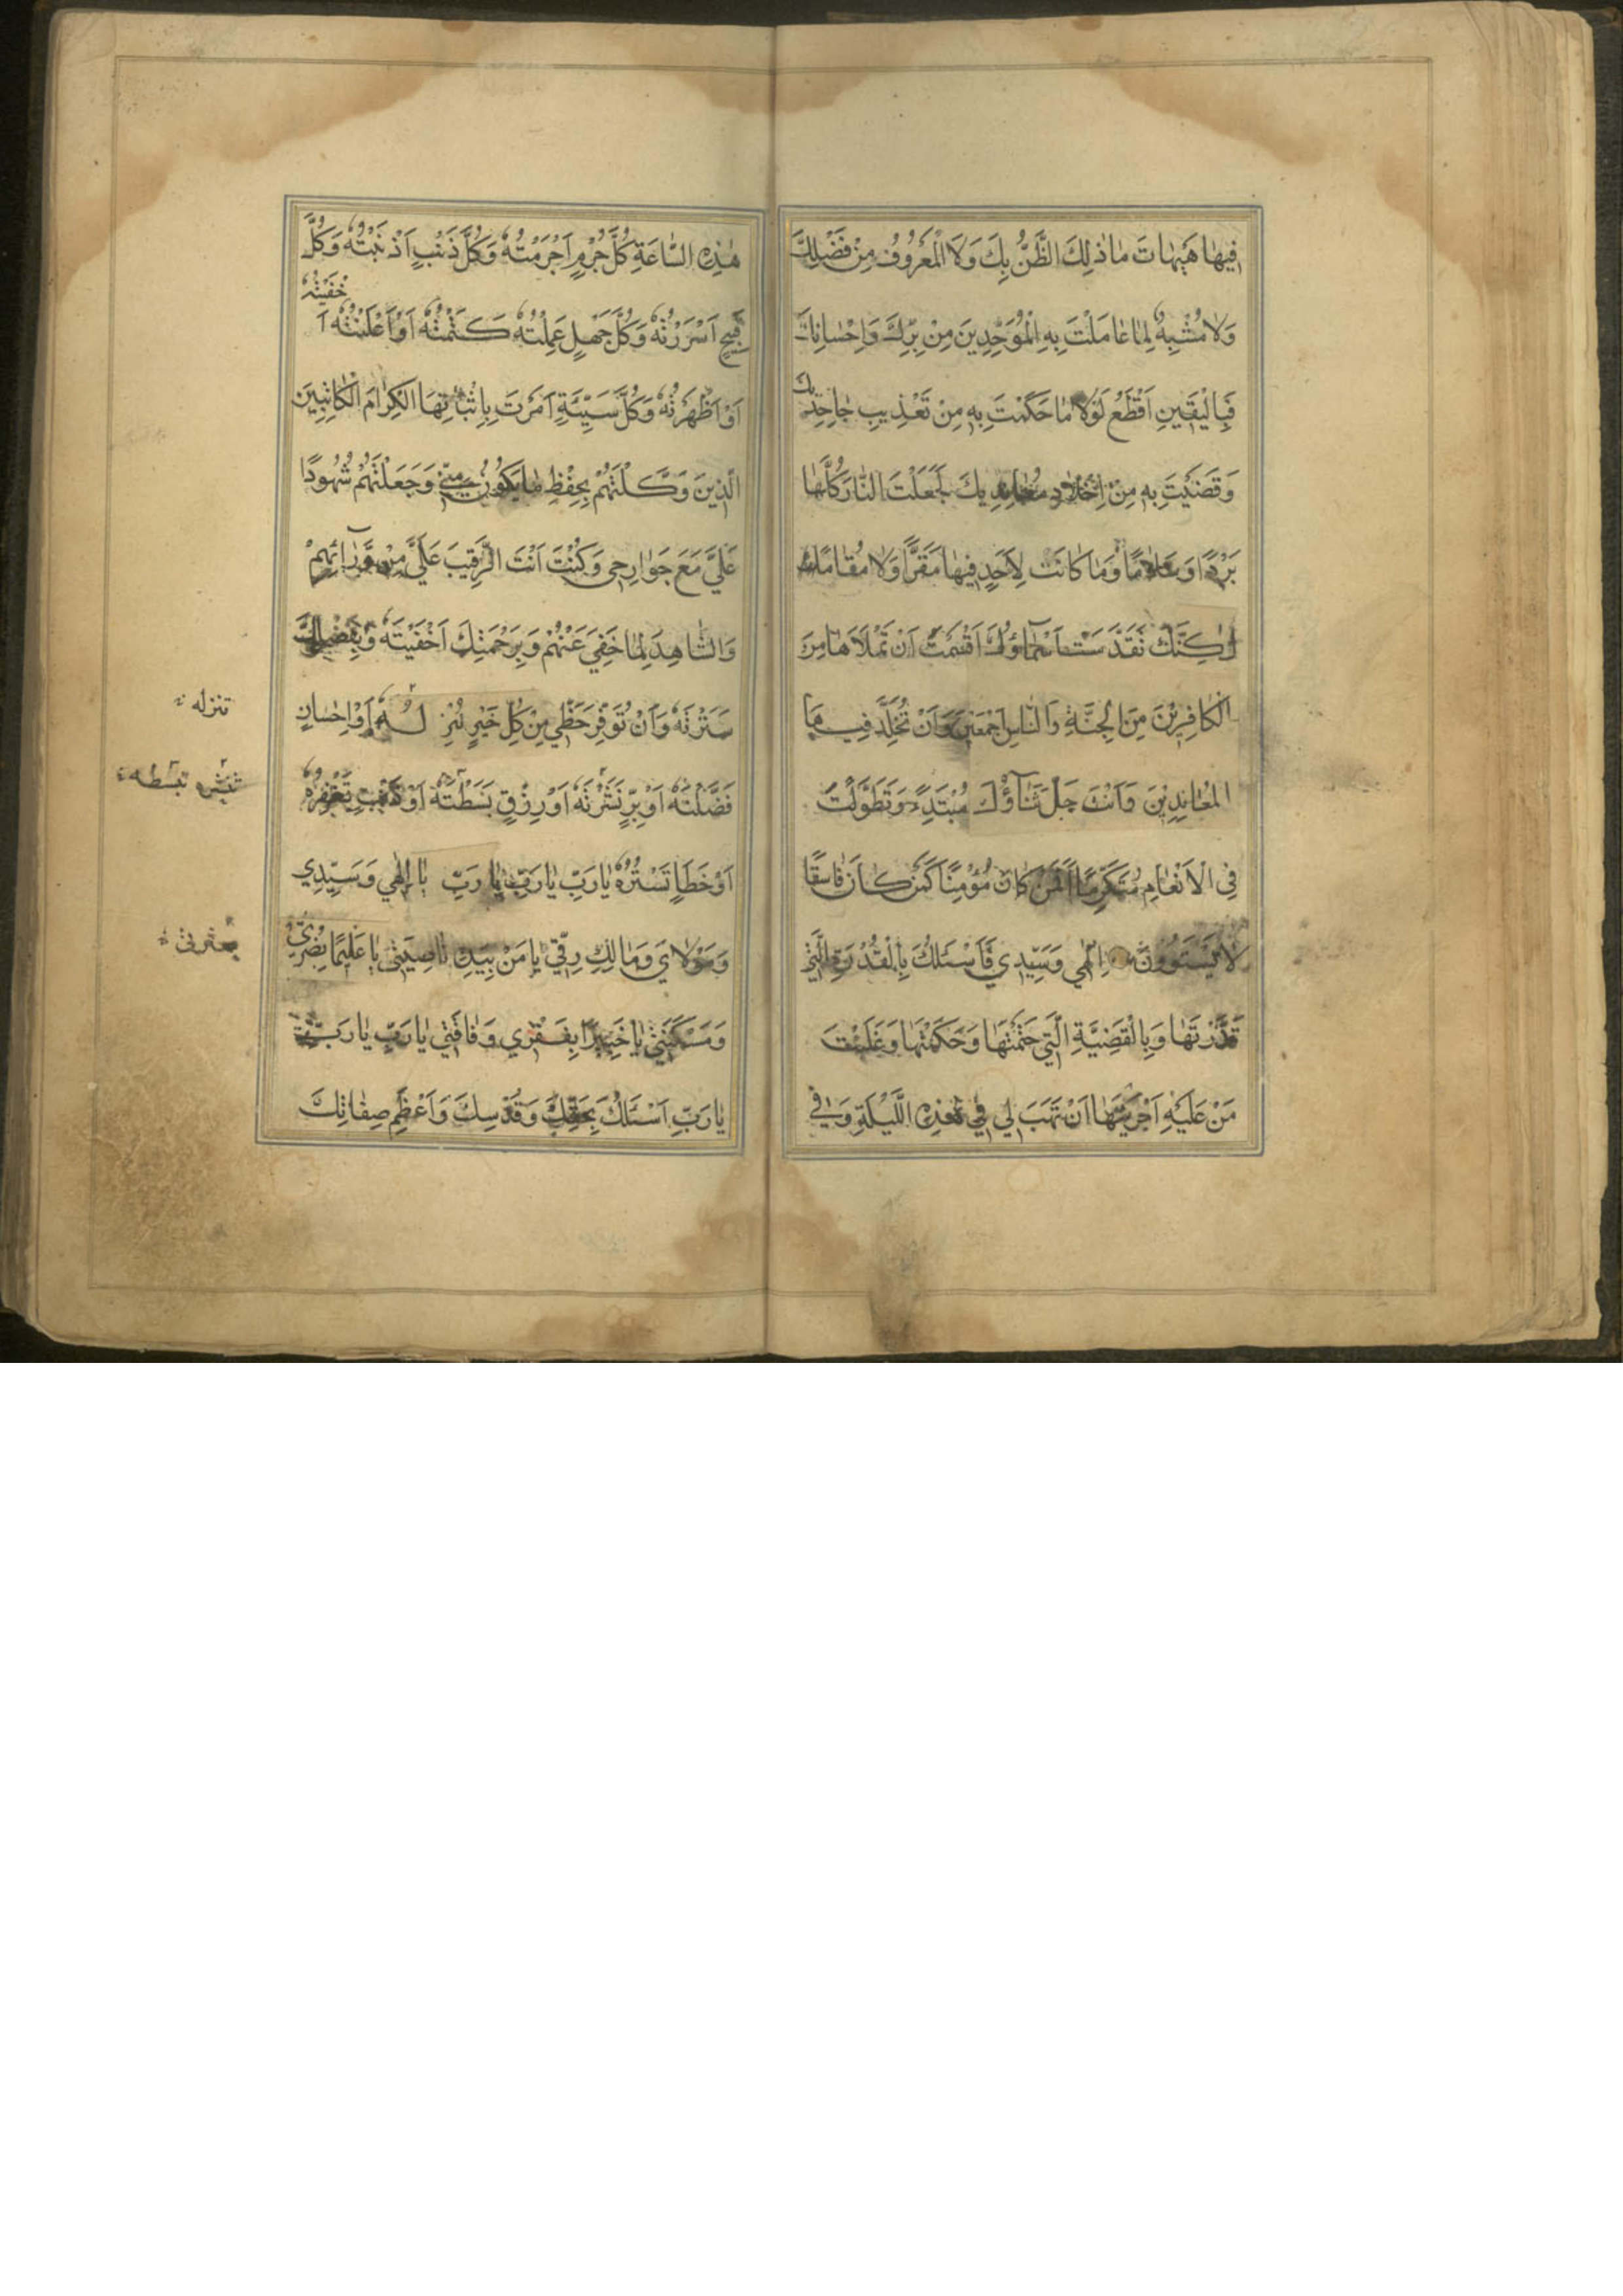 فِيهَا هَيْهَاتَ مَا ذٰلِكَ الظَّنُّ بِكَ وَلَا الْمَعْرُوفُ مِنْ فَضْلِكَ
وَلَا مُشْبِهٌ لِمَا عَامَلْتَ بِهِ الْمُوَحِّدِينَ مِنْ بِرِّكَ وَاِحْسَانِكَ
فَبِالْيَقِينِ اَقْطَعُ لَوْلَا مَا حَكَمْتَ بِهِ مِنْ تَعْذِيبِ جَاحِدِيكَ
وَقَضَيْتَ بِهِ مِنْ اِخْلَادِ مُعَانِدِيكَ لَجَعَلْتَ النَّارَ كُلَّهَا
بَرْدًا وَسَلَامًا وَمَا كَانَتْ لِاَحَدٍ فِيهَا مَقَرًّا وَلَا مُقَامًا
لٰكِنَّكَ تَقَدَّسَتْ اَسْمَاؤُكَ اَقْسَمْتَ اَنْ تَمْلَاَهَا مِنَ
الْكَافِرِيْنَ مِنَ الْجِنَّةِ وَالنَّاسِ اَجْمَعِينَ وَاَنْ تُخَلِّدَ فِيهَا
الْمُعَانِدِيْنَ وَاَنْتَ جَلَّ ثَنَاؤُكَ مُبْتَدِءً وَتَطَوَّلْتَ
فِي الْاَنْعَامِ مُتَكَرِّمًا اَفَمَنْ كَانَ مُؤْمِنًا كَمَنْ كَانَ فَاسِقًا
لَا يَسْتَوُونَ اِلٰهِي وَسَيِّدِي فَاَسْئَلُكَ بِالْقُدْرَةِ الَّتِي
قَدَّرْتَهَا وَبِالْقَضِيَّةِ الَّتِي حَتَمْتَهَا وَحَكَمْتَهَا وَغَلَبْتَ
مَنْ عَلَيْهِ اَجْرَيْتَهَا اَنْ تَهَبَ لِي فِي هٰذِهِ اللَّيْلَةِ وَفِي
هٰذِهِ السَّاعَةِ كُلَّ جُرْمٍ اَجْرَمْتُهُ وَكُلَّ ذَنْبٍ اَذْنَبْتُهُ وَكُلَّ
قَبِيحٍ اَسْرَرْتُهُ وَكُلَّ جَهْلٍ عَمِلْتُهُ كَتَمْتُهُ اَوْ اَعْلَنْتُهُ اَخْفَيْتُهُ
اَوْ اَظْهَرْتُهُ وَكُلَّ سَيِّئَةٍ اَمَرْتَ بِاِثْبَاتِهَا الْكِرَامَ الْكَاتِبِينَ
الَّذِينَ وَكَّلْتَهُمْ بِحِفْظِ مَا يَكُونُ مِنِّي وَجَعَلْتَهُمْ شُهُودًا
عَلَيَّ مَعَ جَوَارِحِي وَكُنْتَ اَنْتَ الرَّقِيبَ عَلَيَّ مِنْ وَرَائِهِمْ
وَالشَّاهِدَ لِمَا خَفِيَ عَنْهُمْ وَبِرَحْمَتِكَ اَخْفَيْتَهُ وَبِفَضْلِكَ
سَتَرْتَهُ وَاَنْ تُوَفِّرَ حَظِّي مِنْ كُلِّ خَيْرٍ تُنْزِلُهُ اَوْ اِحْسَانٍ
تنزله
فَضَّلْتَهُ اَوْ بِرٍّ نَشَرْتَهُ اَوْ رِزْقٍ بَسَطْتَهُ اَوْ ذَنْبٍ تَغْفِرُهُ
تنشره تبسطه
اَوْ خَطَاٍ تَسْتُرُهُ يَا رَبِّ يَا رَبِّ يَا رَبِّ يَا اِلٰهِي وَسَيِّدِي
وَمَوْلَايَ وَمَالِكَ رِقِّي يَا مَنْ بِيَدِهِ نَاصِيَتِي يَا عَلِيمًا بِضُرِّي
وَمَسْكَنَتِي يَا خَبِيرًا بِفَقْرِي وَفَاقَتِي يَا رَبِّ يَا رَبِّ
يَا رَبِّ اَسْئَلُكَ بِحَقِّكَ وَقُدْسِكَ وَاَعْظَمِ صِفَاتِكَ